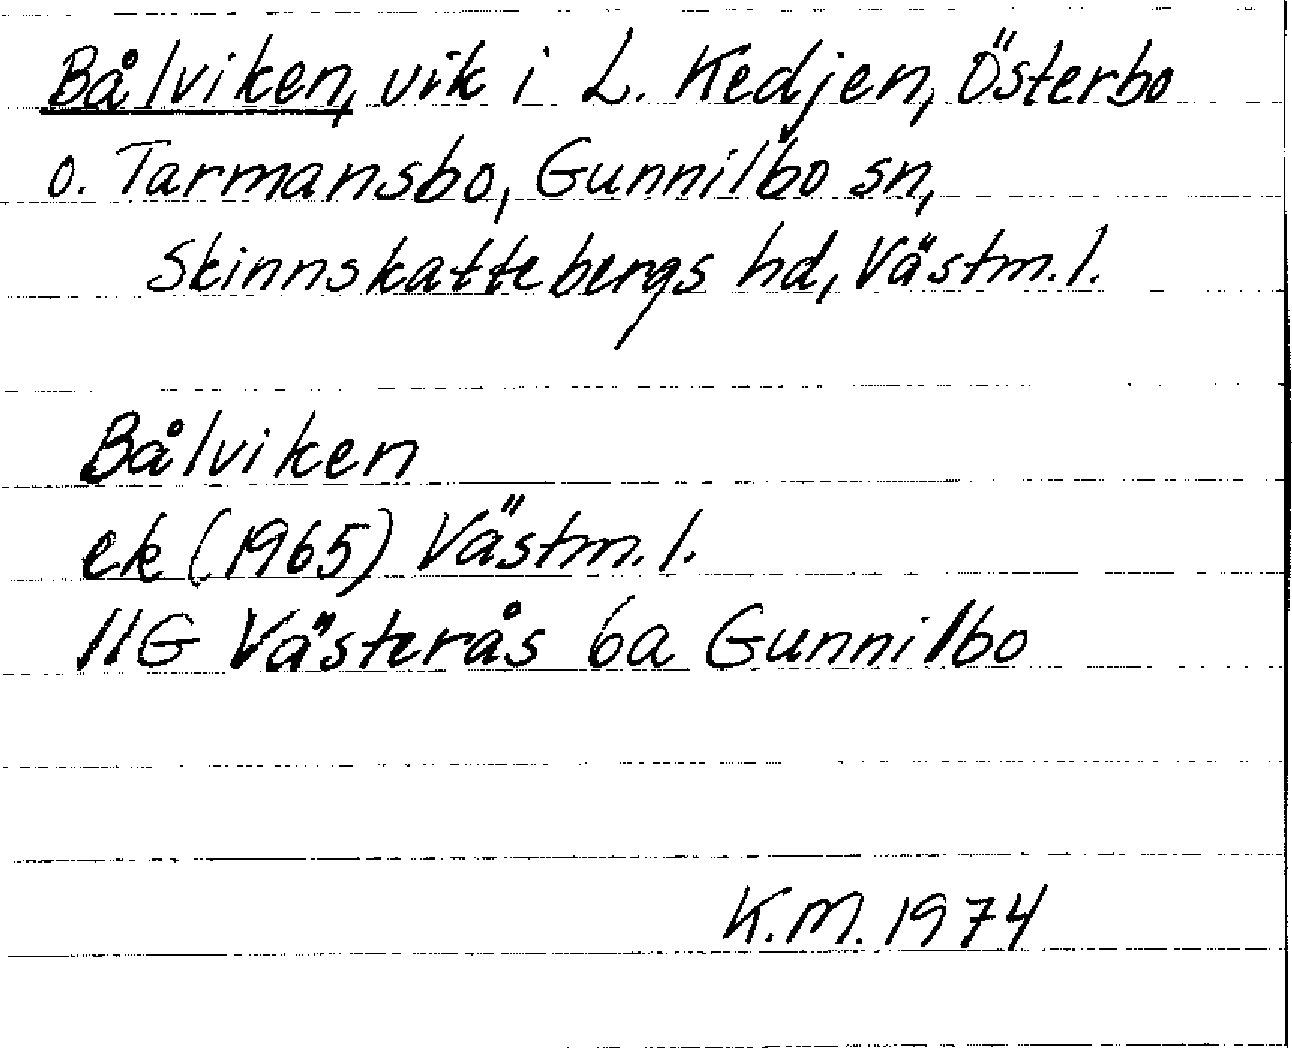 Bålviken, vik i L. Kedjen, Österbo
o. Tarmansbo, Gunnilbo sn,
Skinnskattebergs hd, Västm. l.
Bålviken
ek (1965) Västm. l.
11G Västerås 6a Gunnilbo
K.M. 1974